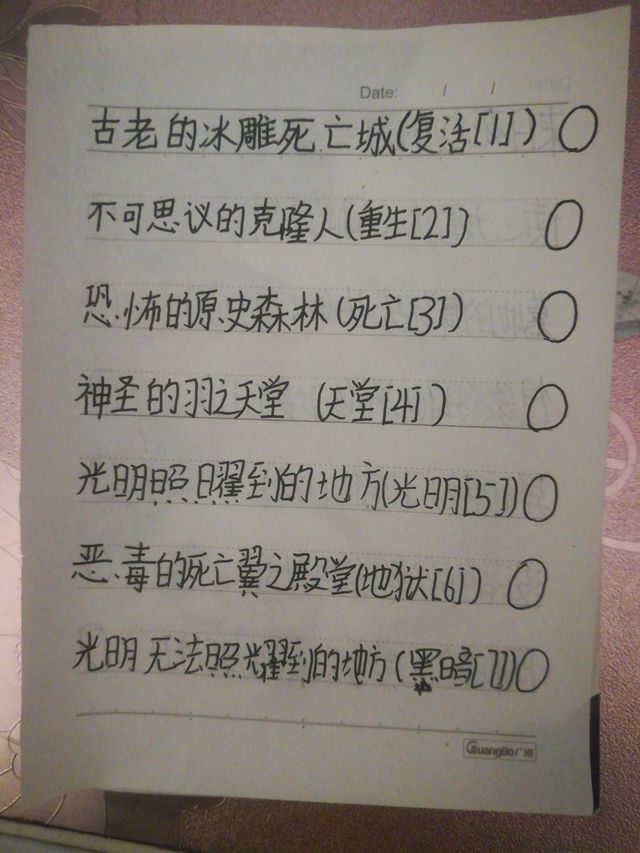 Date: / /
古老的冰雕死亡城(复活[1])〇
不可思议的克隆人(重生[2])〇
恐怖的原史森林(死亡[3])〇
神圣的羽之天堂 (天堂[4])〇
光明照曜到的地方(光明[5])〇
恶毒的死亡翼之殿堂(地狱[6])〇
光明无法照耀到的地方(黑暗[7])〇
GuangBo广博